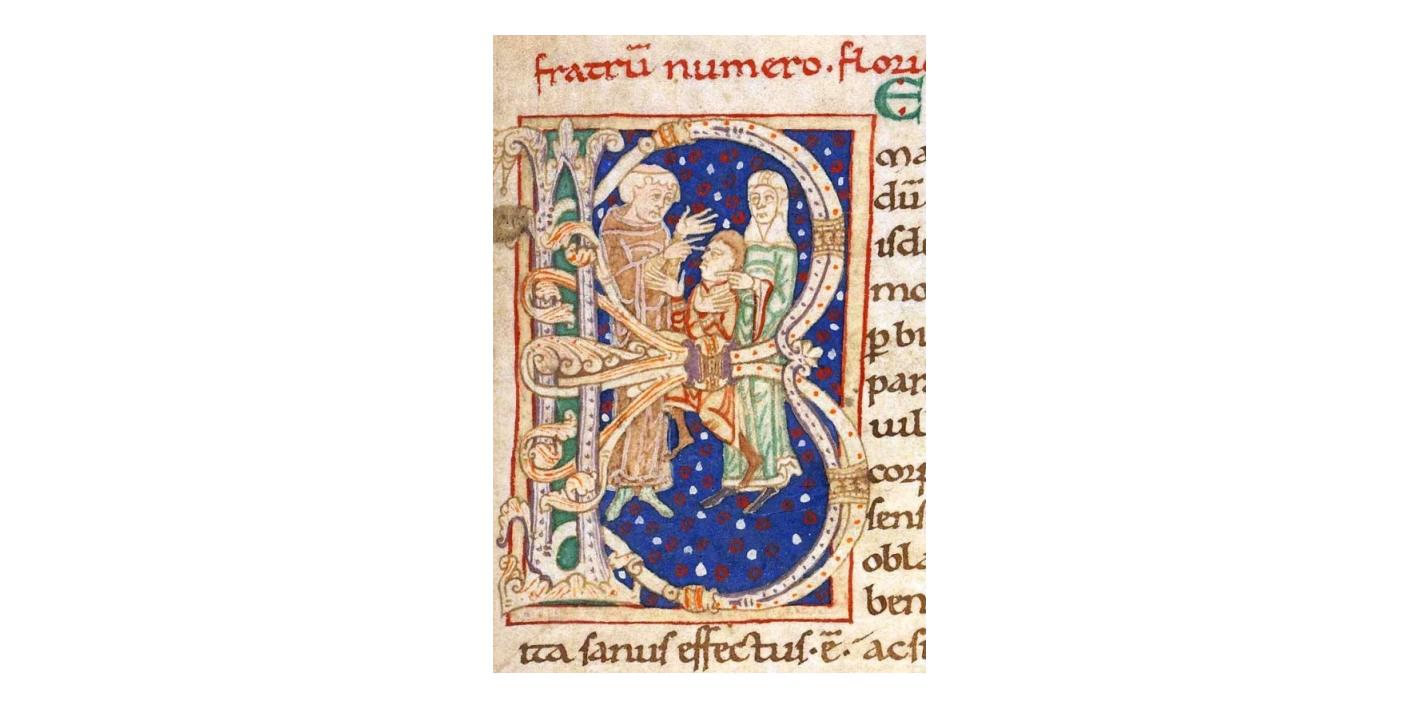 fratrū numero. flori
B E
ma
dū
isd
mo
ꝑ bi
par
uil
corp
sens
obla
ben
ita sanus effectus. ē. ac si